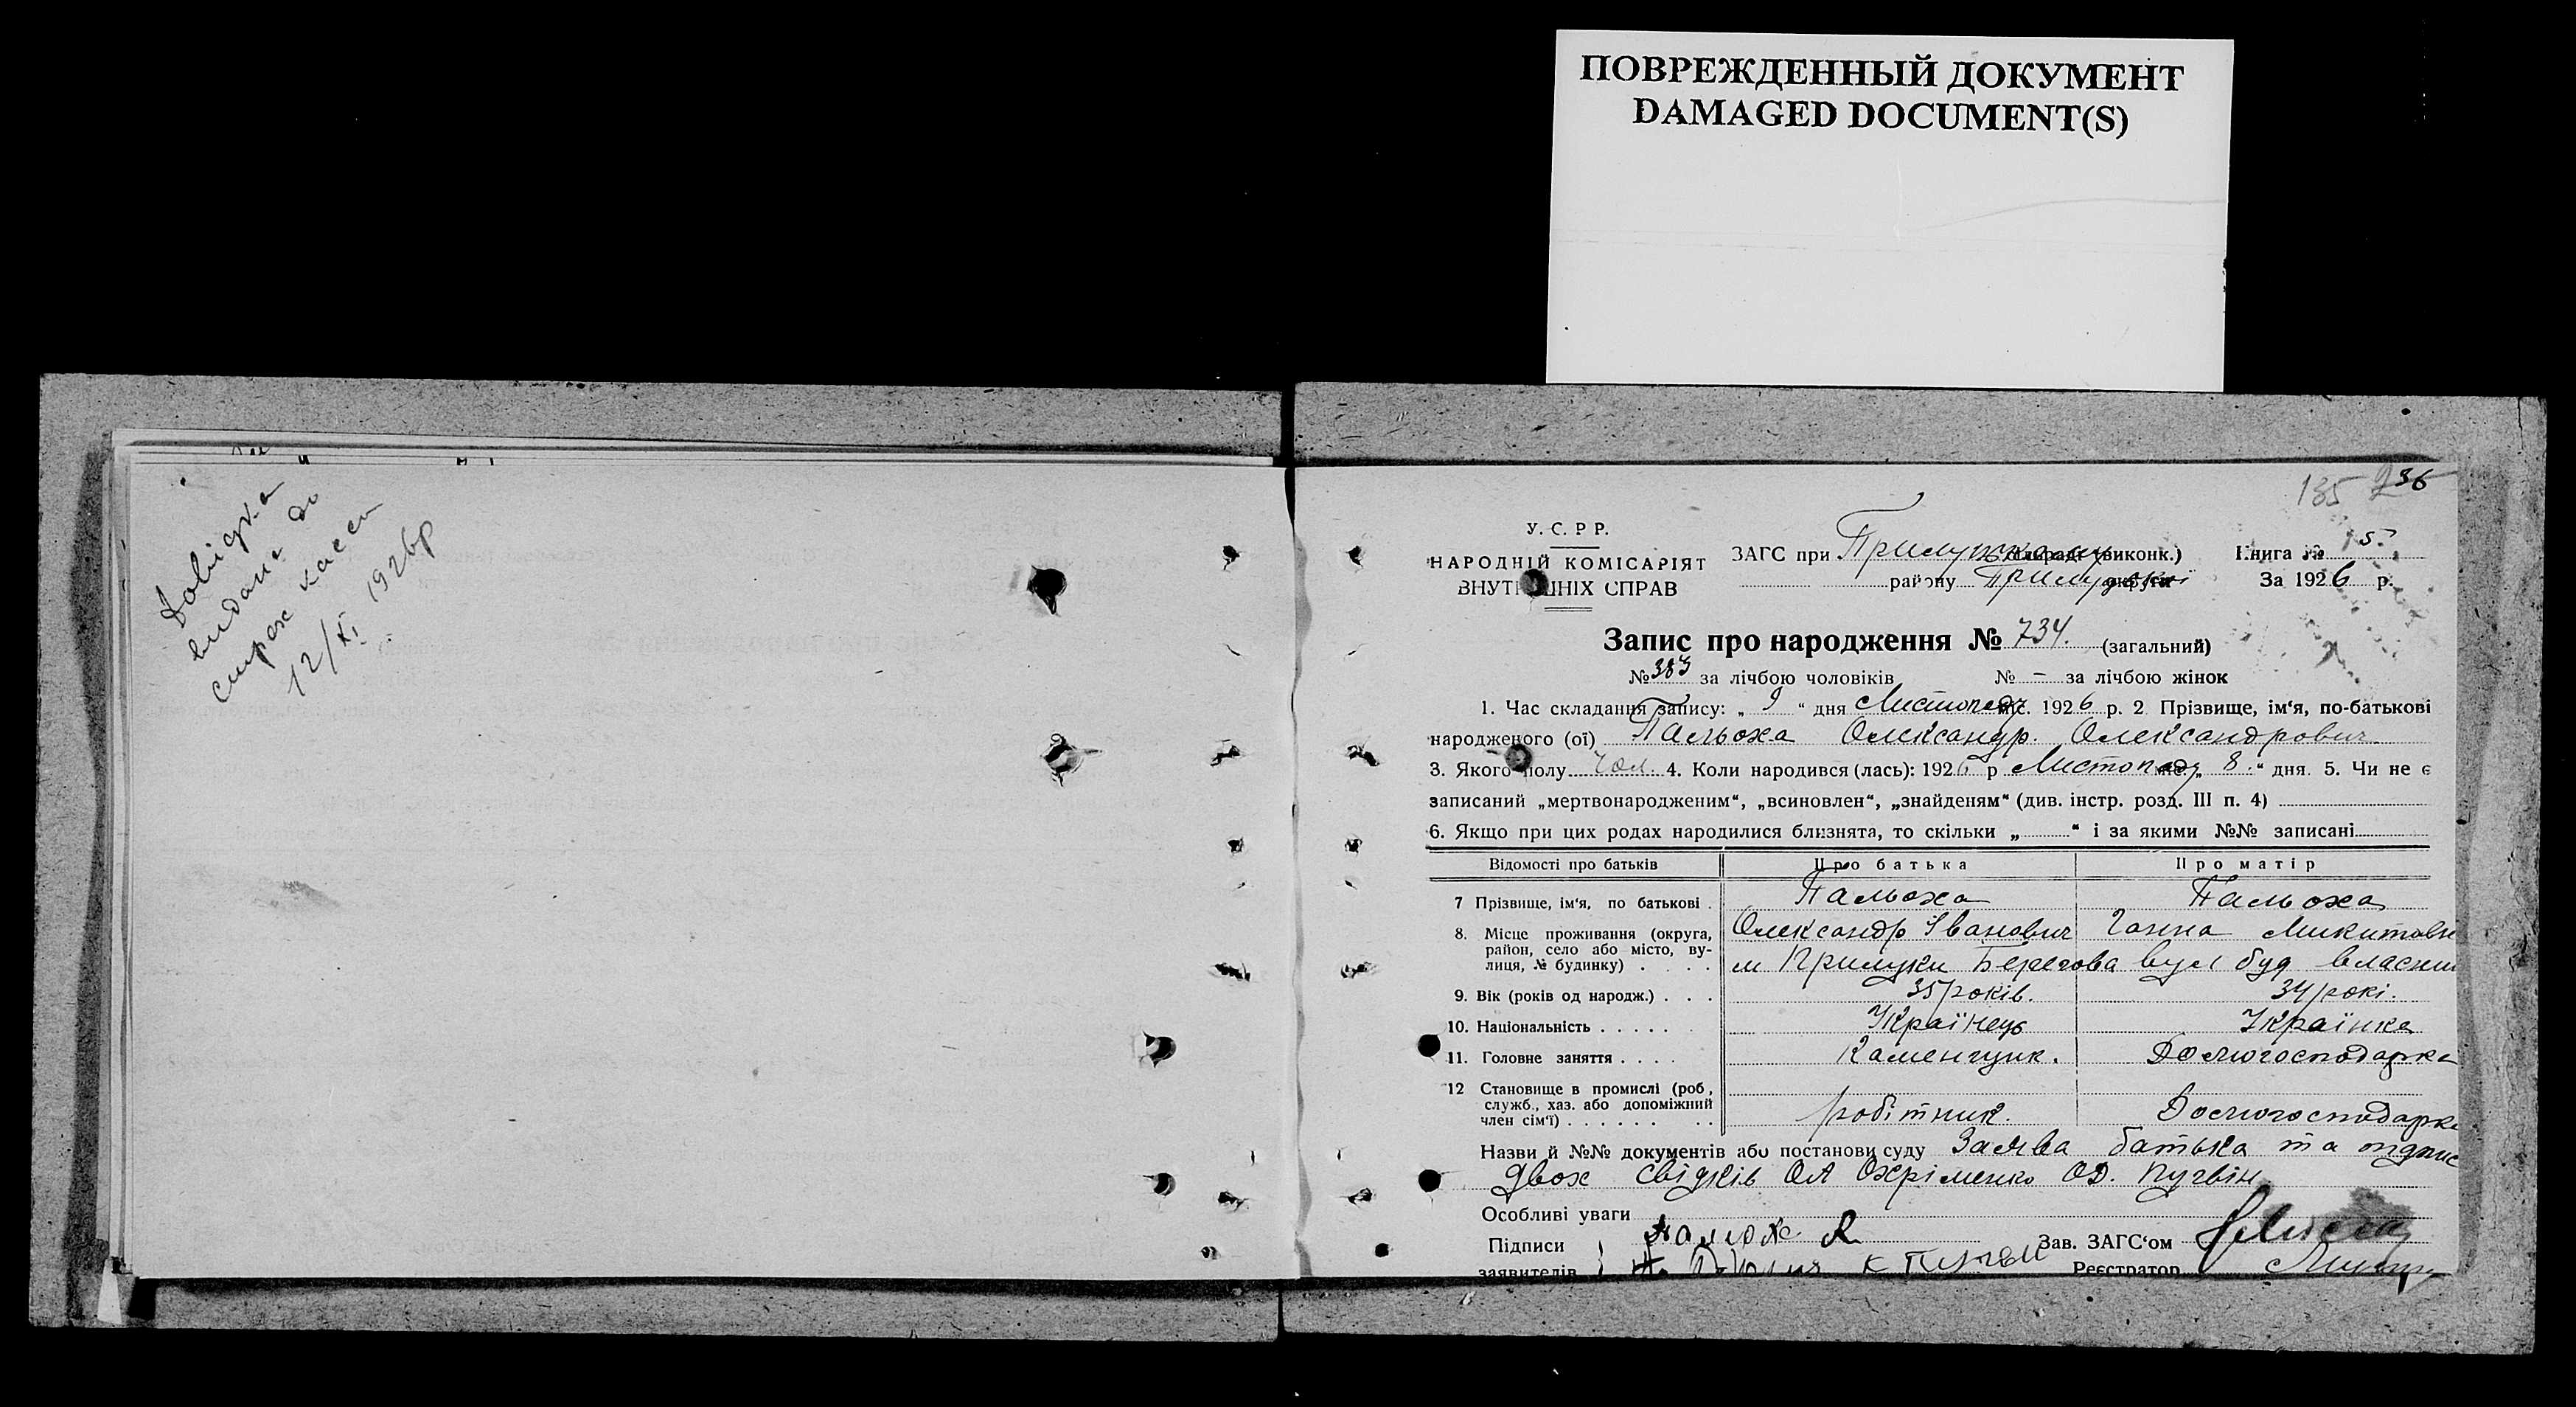 ПОВРЕЖДЕННЫЙ ДОКУМЕНТ
DAMAGED DOCUMENT(S)
Довідка
видана до
страх касси
12/XI 1926р
135 236
У.С.Р.Р.
НАРОДНІЙ КОМІСАРІЯТ
ВНУТРІШНІХ СПРАВ
ЗАГС при Прилуцькому (виконк.) Книга № 5
району Прилуцької округи За 1926 р.
Запис про народження № 734. (загальний)
№ 383 за лічбою чоловіків № – за лічбою жінок
1. Час складання запису: „ 9 “ дня Листопад міс. 1926 р. 2 Прізвище, ім‘я, по-батькові
народженого (ої) Пальоха Олександр. Олександрович
3. Якого полу чол. 4. Коли народився (лась): 1926 р Листопад „ 8. “ дня. 5. Чи не є
записаний „мертвонародженим“, „всиновлен“, „знайденям“ (див. інстр. розд. III п. 4)
6. Якщо при цих родах народилися близнята, то скільки „ “ і за якими №№ записані
Відомості про батьків Про батька Про матір
7 Прізвище, ім‘я, по батькові . Пальоха Пальоха
Олександр Іванович Ганна Микитовн
8. Місце проживання (округа, район, село або місто, ву-
лиця, № будинку) . . . . м Прилуки Берегова вул буд власни
9. Вік (років од народж.) . . . 35 років. 34 рокі.
10. Національність . . . . . Українець Українка
11. Головне заняття . . . . Каменщик. Домогосподарка
12 Становище в промислі (роб,
служб., хаз. або допоміжний
член сім‘ї) . . . . . . . . робітник. Домогосподарка
Назви й №№ документів або постанови суду Заява батька та підпис
двох свідків ОА Охріменко ОД.
Особливі уваги
Підписи
заявителів
Зав. ЗАГС‘ом
Реєстратор